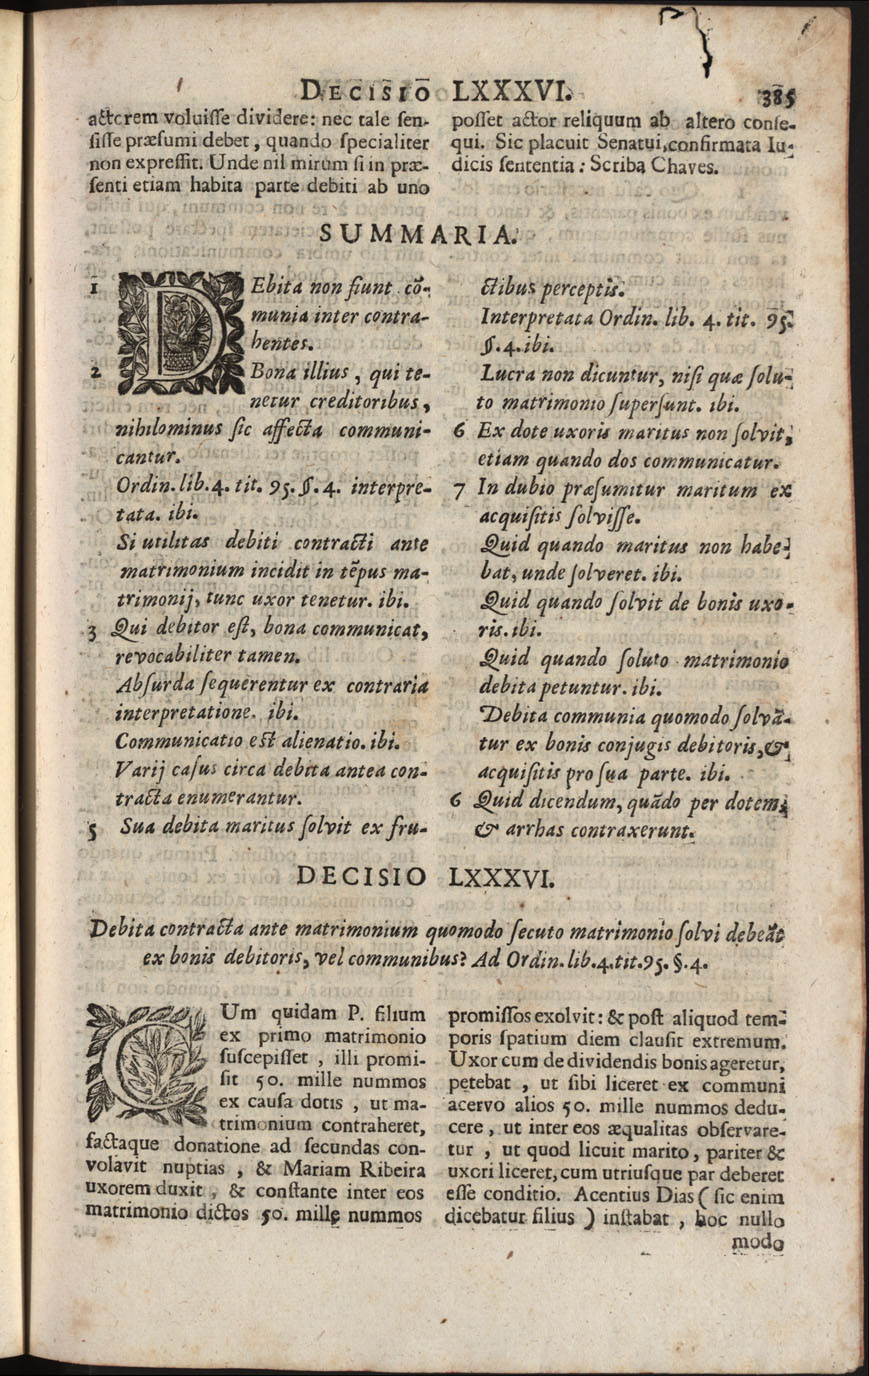 DECISIO LXXXVI.
385
actorem voluisse dividere: nec tale sen-
sisse præsumi debet, quando specialiter
non expressit. Unde nil mirum si in præ-
senti etiam habita parte debiti ab uno
posset actor reliquum ab altero conse-
qui. Sic placuit Senatui, confirmata Iu-
dicis sententia: Scriba Chaves.
SUMMARIA.
1 DEbita non fiunt cõ-
munia inter contra-
hentes.
2 Bona illius, qui te-
netur creditoribus,
nihilominus sic affecta communi-
cantur.
Ordin. lib. 4. tit. 95. §. 4. interpre-
tata. ibi.
Si utilitas debiti contracti ante
matrimonium incidit in tẽpus ma-
trimonij, tunc uxor tenetur. ibi.
3 Qui debitor est, bona communicat,
revocabiliter tamen.
Absurda sequerentur ex contraria
interpretatione. ibi.
Communicatio est alienatio. ibi.
Varij casus circa debita antea con-
tracta enumerantur.
5 Sua debita maritus solvit ex fru-
ctibus perceptis.
Interpretata Ordin. lib. 4. tit. 95.
§. 4. ibi.
Lucra non dicuntur, nisi quæ solu-
to matrimonio supersunt. ibi.
6 Ex dote uxoris maritus non solvit,
etiam quando dos communicatur.
7 In dubio præsumitur maritum ex
acquisitis solvisse.
Quid quando maritus non habe-
bat, unde solveret. ibi.
Quid quando solvit de bonis uxo-
ris. ibi.
Quid quando soluto matrimonio
debita petuntur. ibi.
Debita communia quomodo solvã-
tur ex bonis conjugis debitoris, &
acquisitis pro sua parte. ibi.
6 Quid dicendum, quãdo per dotem,
& arrhas contraxerunt.
DECISIO LXXXVI.
Debita contracta ante matrimonium quomodo secuto matrimonio solvi debeãt
ex bonis debitoris, vel communibus? Ad Ordin. lib. 4. tit. 95. §. 4.
CUm quidam P. filium
ex primo matrimonio
suscepisset, illi promi-
sit 50. mille nummos
ex causa dotis, ut ma-
trimonium contraheret,
factaque donatione ad secundas con-
volavit nuptias, & Mariam Ribeira
uxorem duxit, & constante inter eos
matrimonio dictos 50. mille nummos
promissos exolvit: & post aliquod tem-
poris spatium diem clausit extremum.
Uxor cum de dividendis bonis ageretur,
petebat, ut sibi liceret ex communi
acervo alios 50. mille nummos dedu-
cere, ut inter eos æqualitas observare-
tur, ut quod licuit marito, pariter &
uxori liceret, cum utriusque par deberet
esse conditio. Acentius Dias (sic enim
dicebatur filius) instabat, hoc nullo
modo